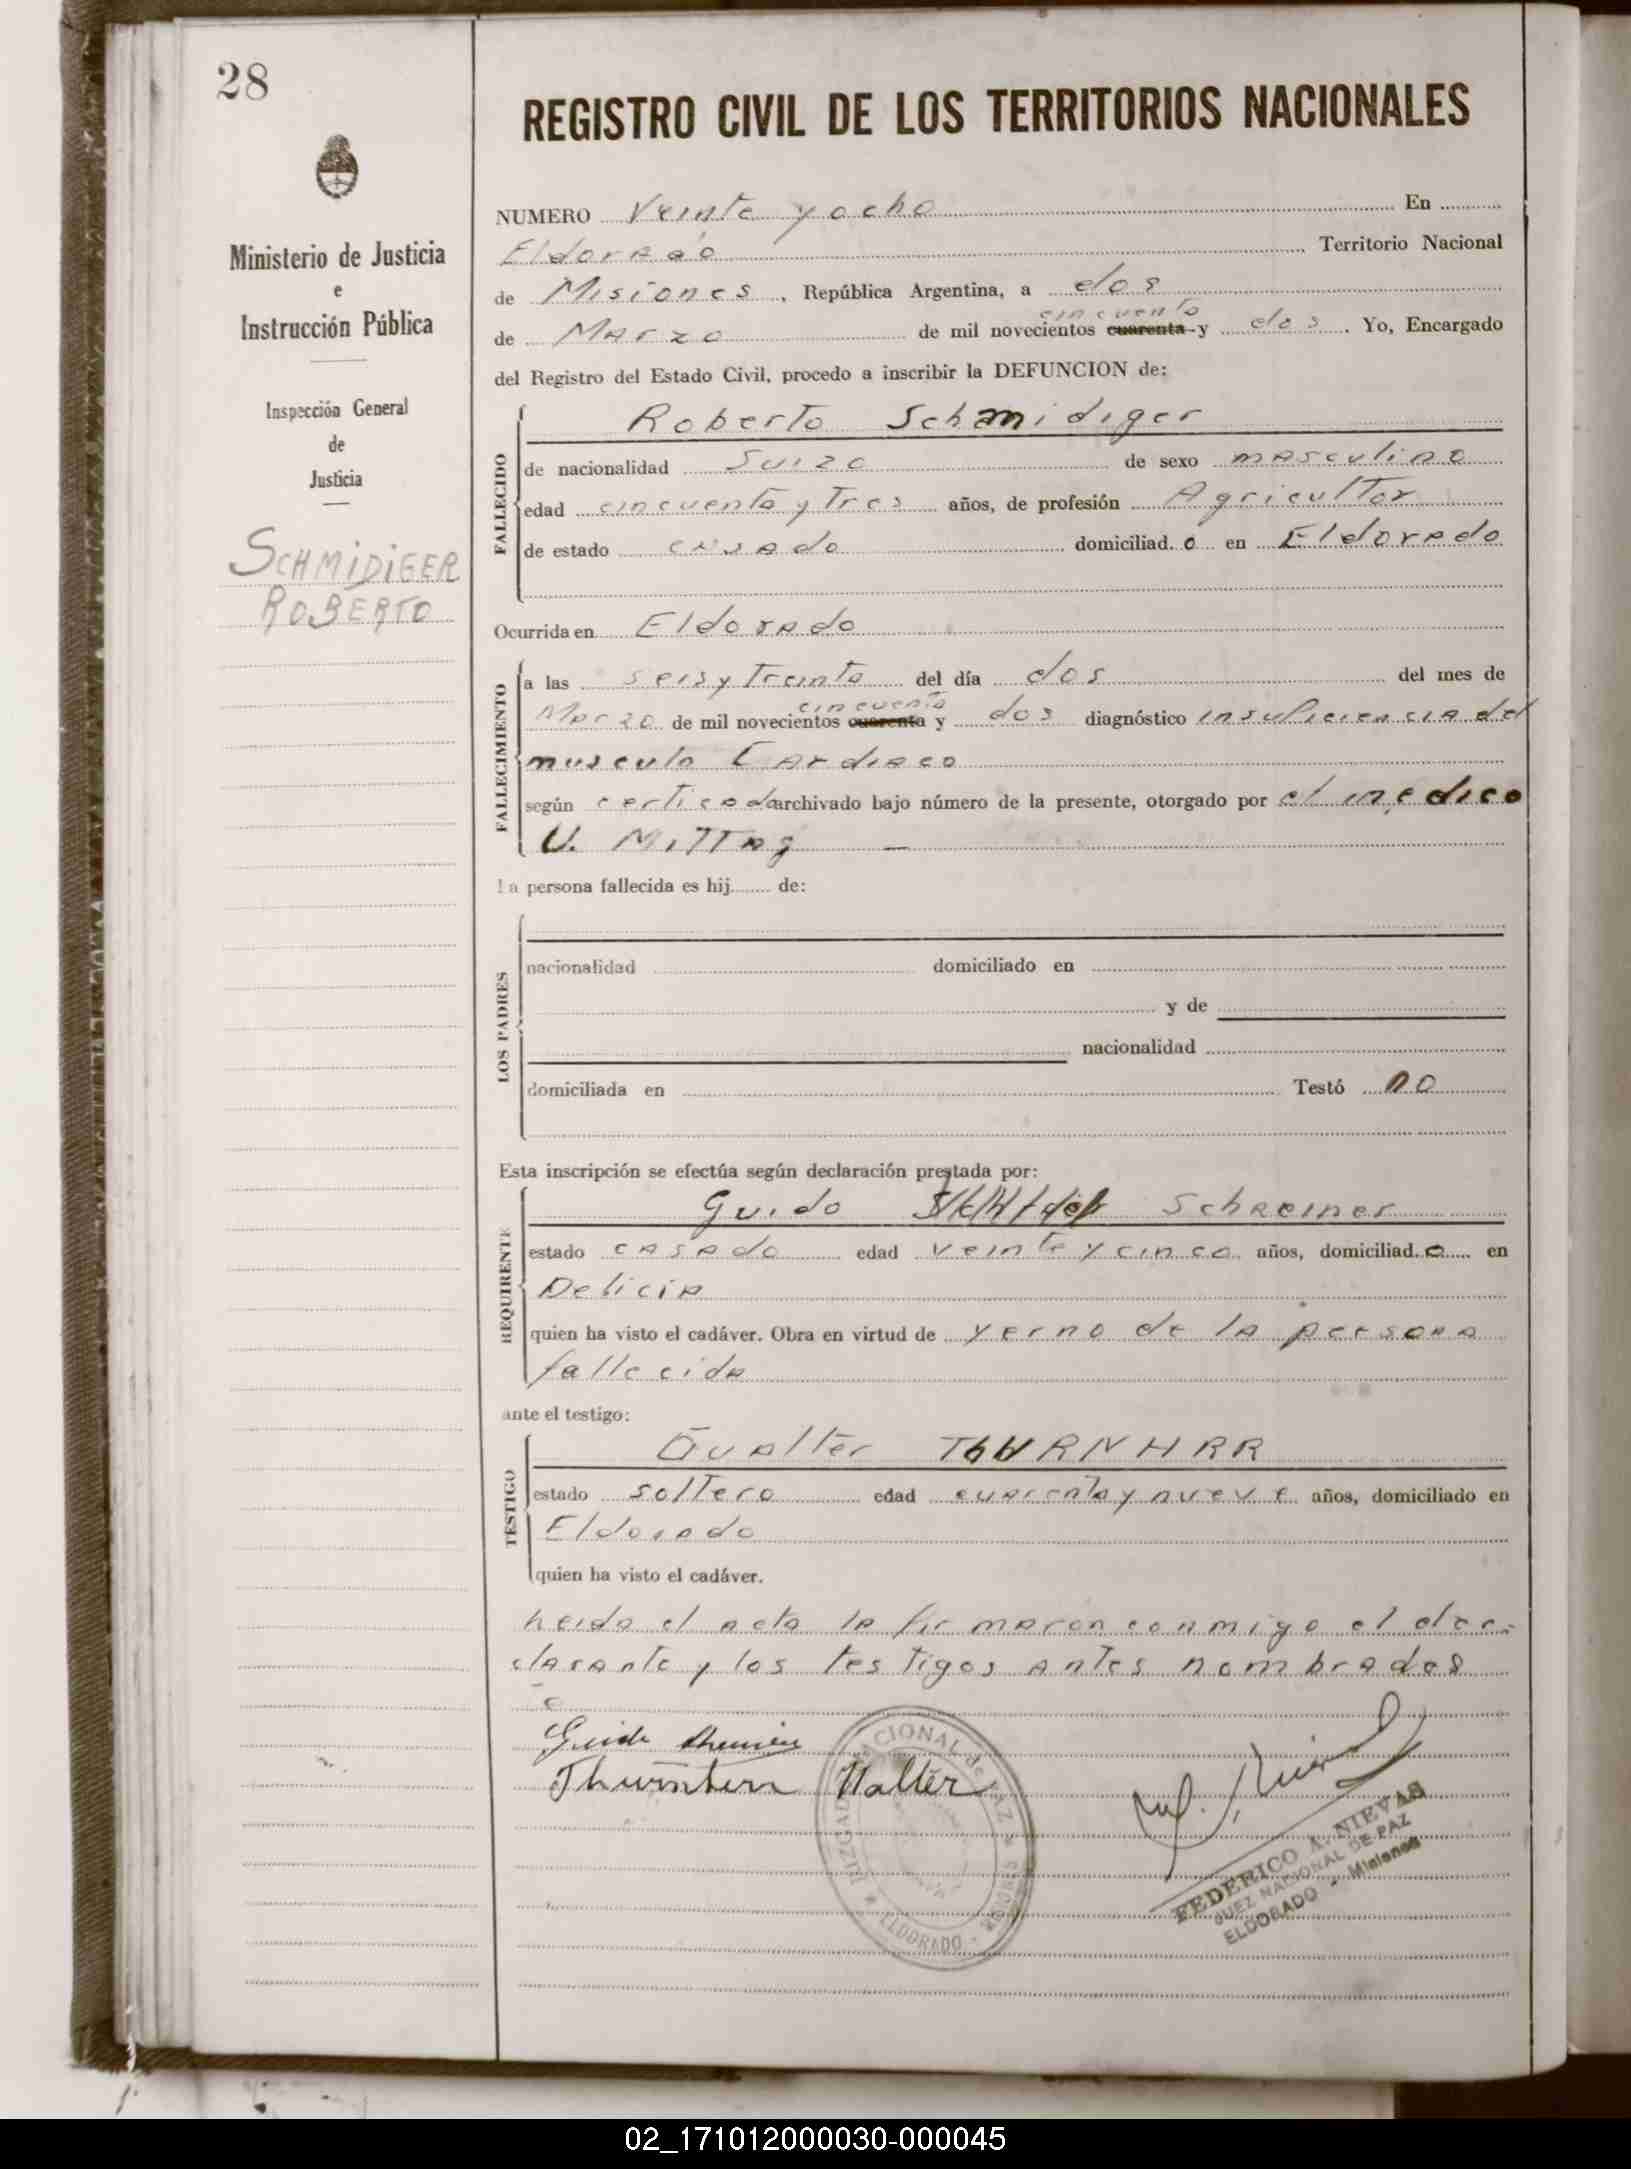 28
REGISTRO CIVIL DE LOS TERRITORIOS NACIONALES
Ministerio de Justicia
e
Instrucción Pública
Inspección General
de
Justicia
SCHMIDIGER
ROBERTO
NUMERO Veinte y ocho En
Eldorado Territorio Nacional
de Misiones, República Argentina, a dos
cincuenta
de Marzo de mil novecientos cuarenta y dos. Yo, Encargado
del Registro del Estado Civil, procedo a inscribir la DEFUNCION de:
FALLECIDO
Roberto Schmidiger
de nacionalidad Suizo de sexo masculino
edad cincuenta y tres años, de profesión Agricultor
de estado casado domiciliad.o en Eldorado
Ocurrida en Eldorado
FALLECIMIENTO
a las seis y treinta del día dos del mes de
cincuenta
Marzo de mil novecientos cuarenta y dos diagnóstico insuficiencia del
musculo Cardiaco
según certicado archivado bajo número de la presente, otorgado por el medico
U. Mittag
La persona fallecida es hij de:
LOS PADRES
nacionalidad domiciliado en
y de
nacionalidad
domiciliada en Testó no
Esta inscripción se efectúa según declaración prestada por:
REQUIRENTE
Guido Schreiner
estado casado edad veinte y cinco años, domiciliad.o en
Delicia
quien ha visto el cadáver. Obra en virtud de yerno de la persona
fallecida
ante el testigo:
TESTIGO
Gualter
estado soltero edad cuarenta y nueve años, domiciliado en
Eldorado
quien ha visto el cadáver.
Leida el acta la firmaron conmigo el dec-
clarante y los testigos antes nombrados
Guido
Walter
JUZGADO NACIONAL de PAZ
ELDORADO
FEDERICO A. NIEVAS
JUEZ NACIONAL DE PAZ
ELDORADO - Misiones
02_171012000030-000045